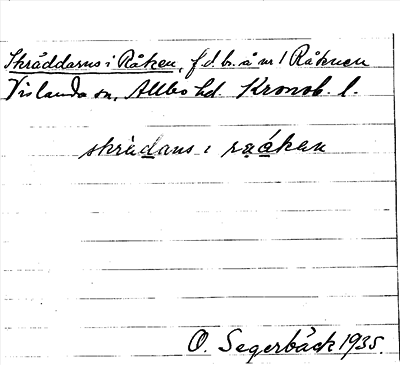 Skräddarns i Råken, f.d.b. å nr 1 Råknen
Vislanda sn, Allbo hd. Kronob. l.
skrädans i raåken
O. Segerbäck 1935.